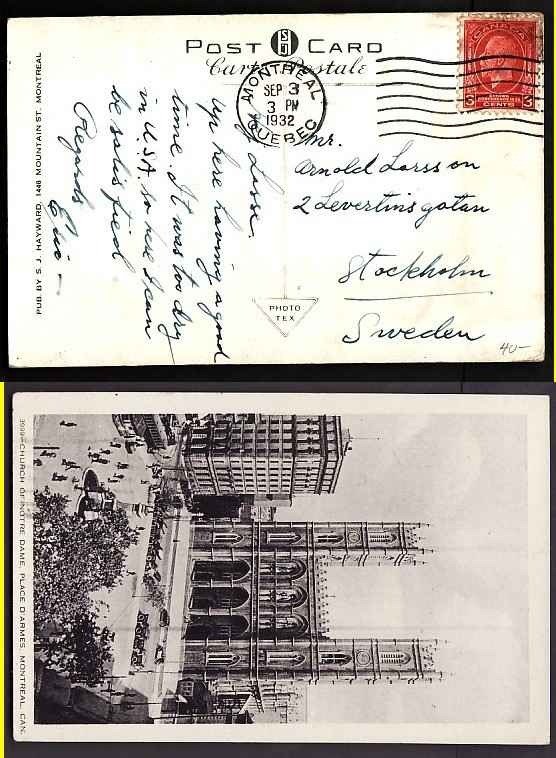 POST CARD
Carte Postale
MONTREAL
SEP 3
3 PM
1932
QUEBEC
CANADA
3 3
CENTS
Lasse.
Up here having a good
time. It was too dry
in U.S.A. so here I can
be satisfied
Regards
Eric
Mr.
Arnold Larsson
2 Levertinsgatan
Stockholm
Sweden
PHOTO
TEX
40-
PUB. BY S. J. HAYWARD, 1448 MOUNTAIN ST. MONTREAL
CHURCH OF NOTRE DAME, PLACE D'ARMES, MONTREAL, CAN.